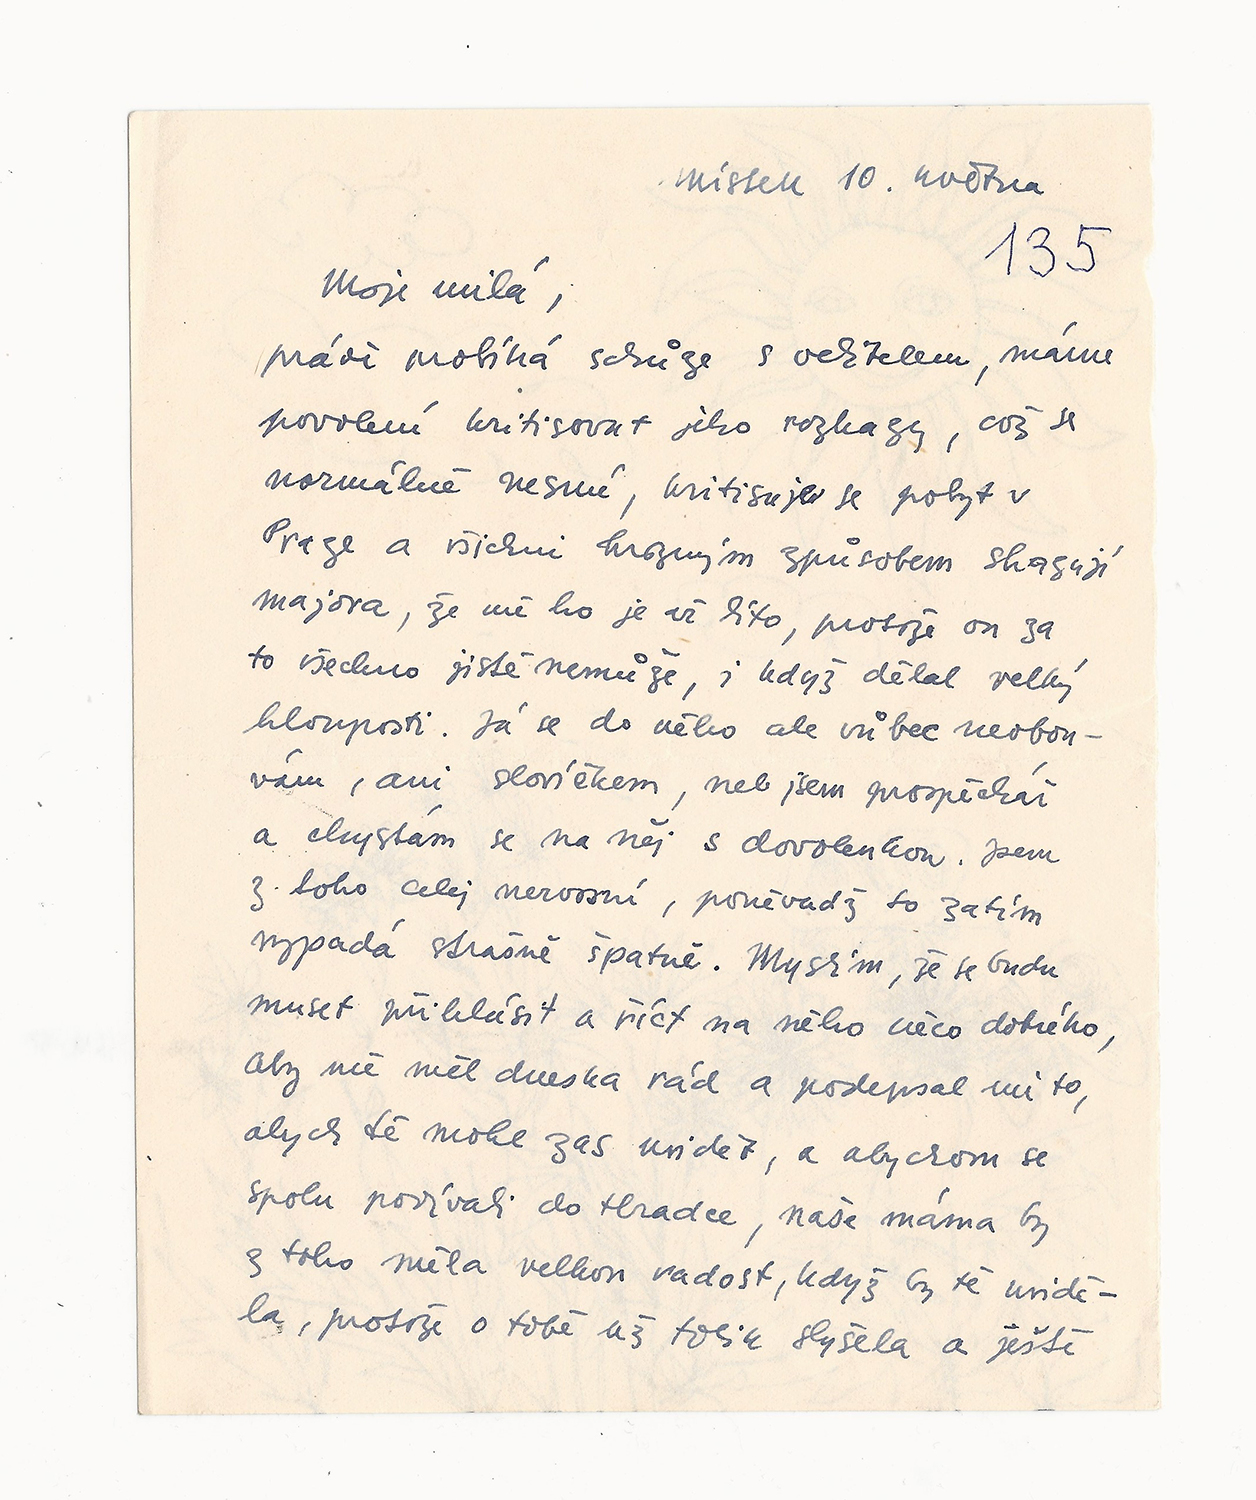 Místek 10. května
135
Moje milá,
právě probíhá schůze s velitelem, máme
povolení kritisovat jeho rozkazy, což se
normálně nesmí, kritisuje se pobyt v
Praze a všichni hrozným způsobem shazují
majora, že mě ho je až líto, protože on za
to všechno jistě nemůže, i když dělal velký
hlouposti. Já se do něho ale vůbec neobou-
vám, ani slovíčkem, neb jsem prospěchář
a chystám se na něj s dovolenkou. Jsem
z toho celej nervosní, poněvadž to zatím
vypadá strašně špatně. Myslím, že se budu
muset přihlásit a říct na něho něco dobrého,
aby mě měl dneska rád a podepsal mi to,
abych tě mohl zas vidět, a abychom se
spolu podívali do Hradce, naše máma by
z toho měla velkou radost, když by tě uvidě-
la, protože o tobě už tolik slyšela a ještě